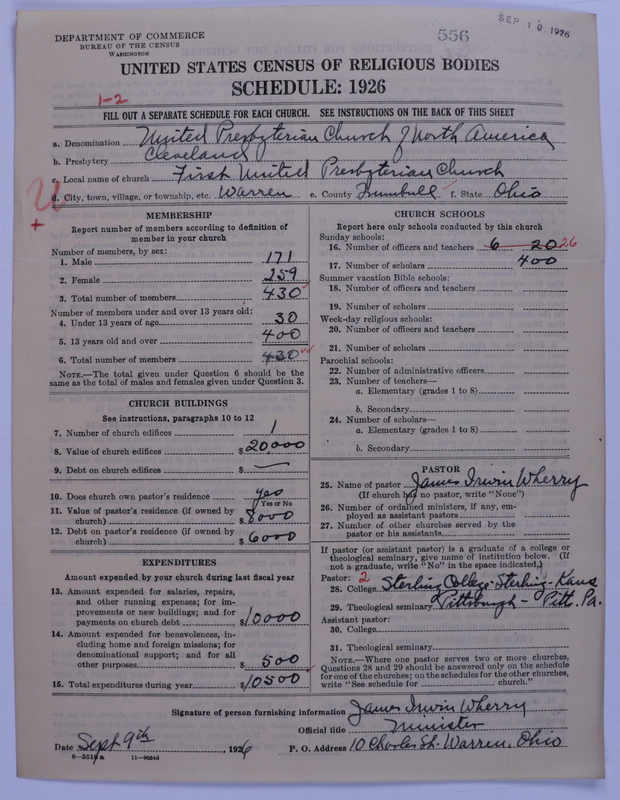 SEP 10 1926
556
DEPARTMENT OF COMMERCE
BUREAU OF THE CENSUS
WASHINGTON
UNITED STATES CENSUS OF RELIGIOUS BODIES
SCHEDULE: 1926
1-2
FILL OUT A SEPARATE SCHEDULE FOR EACH CHURCH. SEE INSTRUCTIONS ON THE BACK OF THIS SHEET
a. Denomination United Presbyterian Church of North America
b. Presbytery Cleveland
c. Local name of church First United Presbyterian Church
d. City, town, village, or township, etc. Warren e. County Trumbull f. State Ohio
MEMBERSHIP
Report number of members according to definition of
member in your church
Number of members, by sex:
1. Male 171
2. Female 259
3. Total number of members 430
Number of members under and over 13 years old:
4. Under 13 years of age 30
5. 13 years old and over 400
6. Total number of members 430
NOTE.—The total given under Question 6 should be
same as the total of males and females given under Question 3.
CHURCH BUILDINGS
See instructions, paragraphs 10 to 12
7. Number of church edifices 1
8. Value of church edifices $20,000
9. Debt on church edifices $ —
10. Does church own pastor's residence yes
Yes or No
11. Value of pastor's residence (if owned by
church) $8000
12. Debt on pastor's residence (if owned by
church) $6000
EXPENDITURES
Amount expended by your church during last fiscal year
13. Amount expended for salaries, repairs,
and other running expenses; for im-
provements or new buildings; and for
payments on church debt $10000
14. Amount expended for benevolences, in-
cluding home and foreign missions; for
denominational support; and for all
other purposes $500
15. Total expenditures during year $10500
CHURCH SCHOOLS
Report here only schools conducted by this church
Sunday schools:
16. Number of officers and teachers 6 20 26
17. Number of scholars 400
Summer vacation Bible schools:
18. Number of officers and teachers
19. Number of scholars
Week-day religious schools:
20. Number of officers and teachers
21. Number of scholars
Parochial schools:
22. Number of administrative officers
23. Number of teachers—
a. Elementary (grades 1 to 8)
b. Secondary
24. Number of scholars—
a. Elementary (grades 1 to 8)
b. Secondary
PASTOR
25. Name of pastor James Irwin Wherry
(If church has no pastor, write "None")
26. Number of ordained ministers, if any, em-
ployed as assistant pastors
27. Number of other churches served by the
pastor or his assistants
If pastor (or assistant pastor) is a graduate of a college or
theological seminary, give name of institution below. (If
not a graduate, write "No" in the space indicated.)
Pastor: 2
28. College Sterling College - Sterling - Kans
29. Theological seminary Pittsburgh - Pitt. Pa.
Assistant pastor:
30. College
31. Theological seminary
NOTE.—Where one pastor serves two or more churches,
Questions 28 and 29 should be answered only on the schedule
for one of the churches; on the schedules for the other churches,
write "See schedule for church."
Signature of person furnishing information James Irwin Wherry
Official title Minister
Date Sept 9th, 1926 P. O. Address 10 Charles St. Warren, Ohio